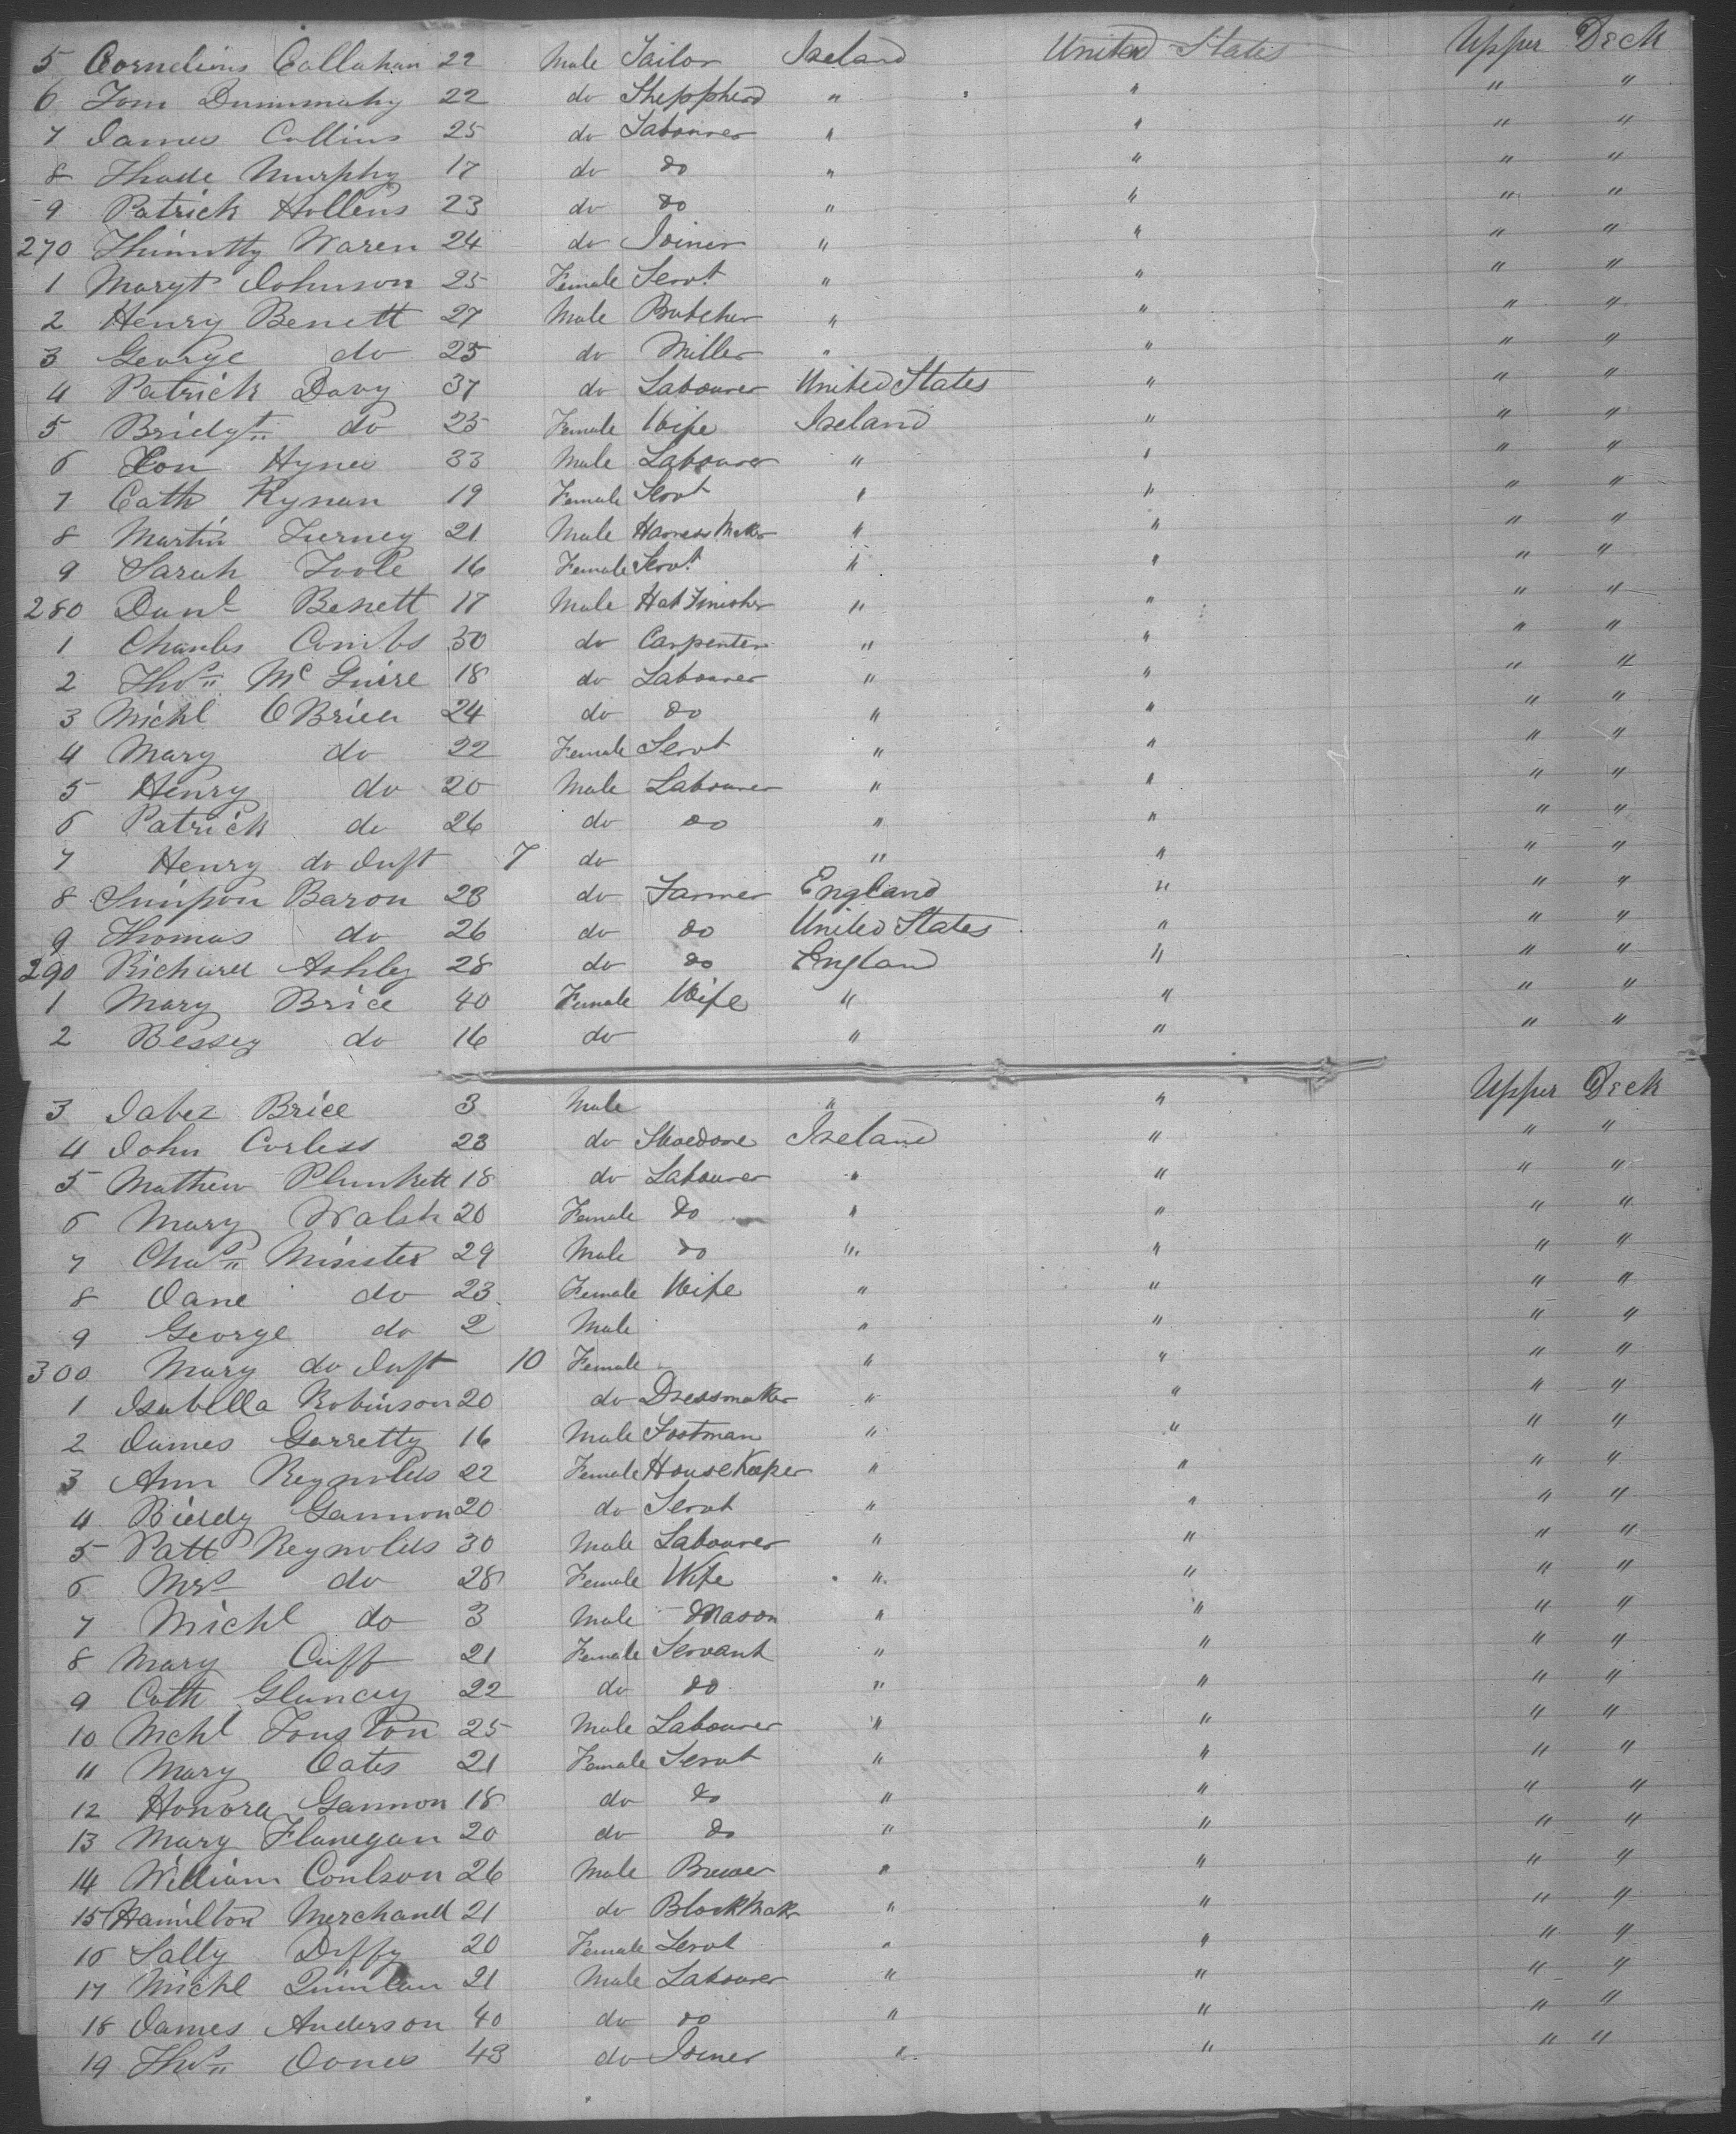 5 Cornelius Callahan 22 Male Tailor Ireland United States Upper Deck
6 Tom Dummahy 22 do Sheppherd " " " "
7 James Collins 25 do Labourer " " " "
8 Thade Murphy 17 do do " " " "
9 Patrick Hollens 23 do do " " " "
270 Thimotty Waren 24 do Joiner " " " "
1 Maryt Johnson 25 Female Servt " " " "
2 Henry Benett 27 Male Butcher " " " "
3 George do 25 do Miller " " " "
4 Patrick Davy 37 do Labourer United States " " "
5 Bridgt do 25 Female Wife Ireland " " "
6 Con Hynes 33 Male Labourer " " " "
7 Cath Kynan 19 Female Servt " " " "
8 Martin Tierney 21 Male Harness Maker " " " "
9 Sarah Toole 16 Female Servt " " " "
280 Danl Benett 17 Male Hat Finisher " " " "
1 Charles Combs 30 do Carpenter " " " "
2 Thos Mc Guire 18 do Labourer " " " "
3 Michl OBrien 24 do do " " " "
4 Mary do 22 Female Servt " " " "
5 Henry do 20 Male Labourer " " " "
6 Patrick do 26 do do " " " "
7 Henry do Inft 7 do " " " "
8 Simpson Baron 28 do Farmer England " " "
9 Thomas do 26 do do United States " " "
290 Richard Ashley 28 do do England " " "
1 Mary Brice 40 Female Wife " " " "
2 Bessey do 16 do " " " "
3 Jabez Brice 3 Male " " Upper Deck
4 John Corless 23 do Ireland " " "
5 Mathew Plunkett 18 do Labourer " " " "
6 Mary Walsh 20 Female do " " " "
7 Chas Minister 29 Male do " " " "
8 Jane do 23 Female Wife " " " "
9 George do 2 Male " " " "
300 Mary do Inft 10 Female " " " "
1 Isabella Robinson 20 do Dressmaker " " " "
2 James Garretty 16 Male Footman " " " "
3 Ann Reynolds 22 Female House Keeper " " " "
4 Biddy Gannon 20 do Servt " " " "
5 Patt Reynolds 30 Male Labourer " " " "
6 Mrs do 28 Female Wife " " " "
7 Michl do 3 Male Mason " " " "
8 Mary Cuff 21 Female Servant " " " "
9 Cath Glancy 22 do do " " " "
10 Michl 25 Male Labourer " " " "
11 Mary Oates 21 Female Servt " " " "
12 Honora Gannon 18 do do " " " "
13 Mary Flanegan 20 do do " " " "
14 William Coulson 26 Male Brewer " " " "
15 Hamilton Merchand 21 do Block Maker " " " "
16 Sally Diffy 20 Female Servt " " " "
17 Michl Quinlan 21 Male Labourer " " " "
18 James Anderson 40 do do " " " "
19 Thos Jones 43 do Joiner " " " "